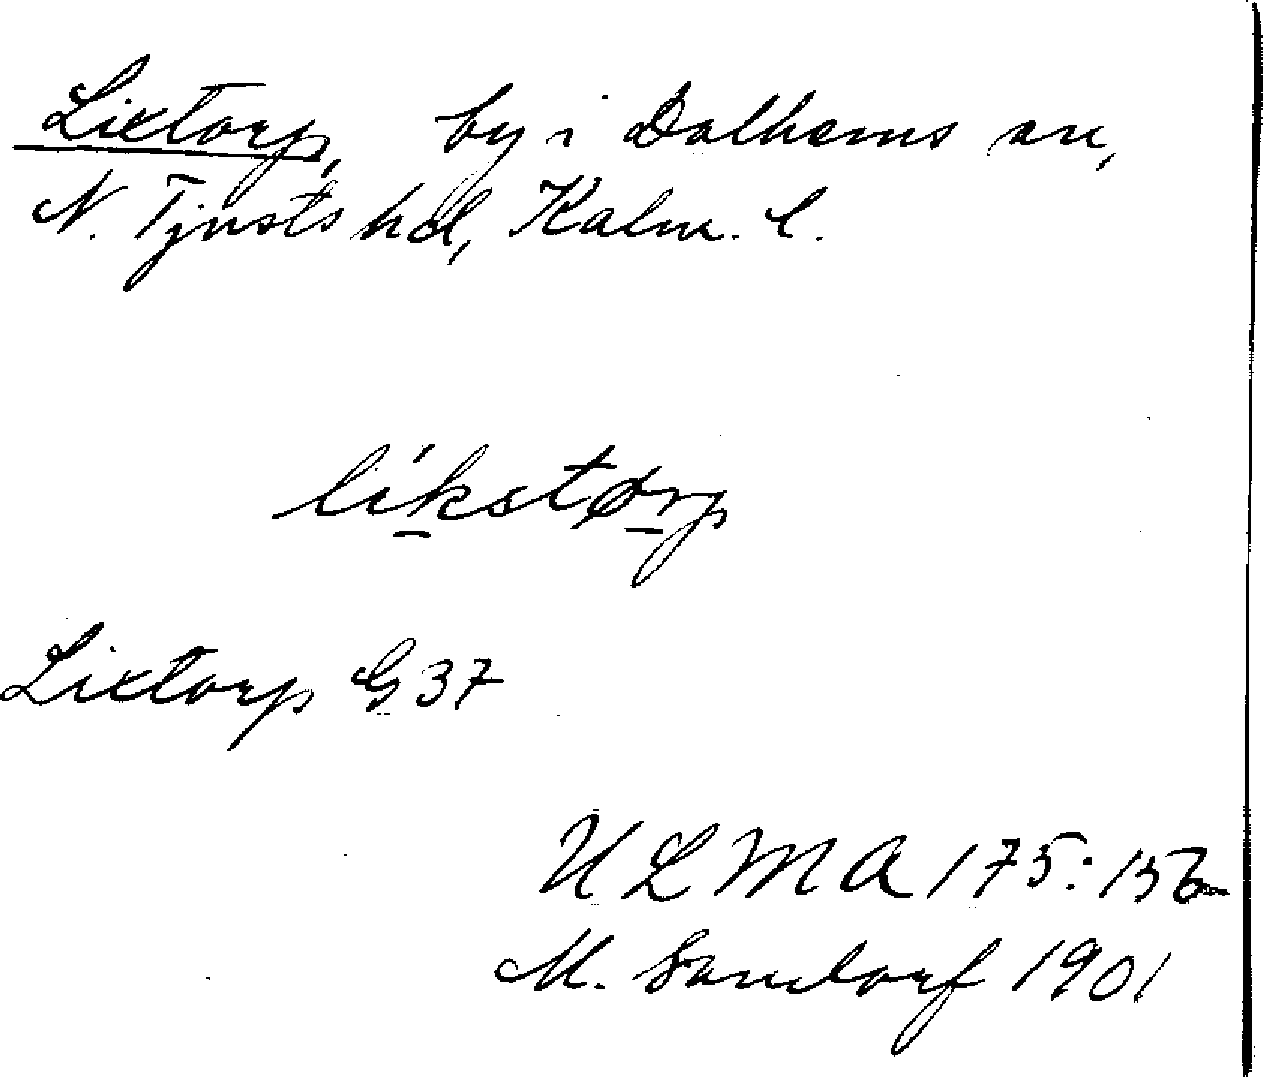 Lixtorp, by i Dalhems sn,
N. Tjusts hd, Kalm. l.
líkstørp
Lixtorp G 37
ULMA 175:15b
M. Sandorf 1901